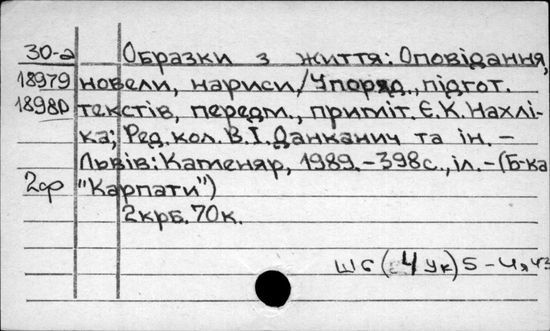 30-а Образки з життя: Оповідання,
18979 новели, нариси / Упоряд., підгот.
18980 текстів, передм., приміт. Є.К. Нахлі-
ка; Ред. кол. В.І. Данканич та ін. –
Львів: Каменяр, 1989. – 398 с., іл. – (Б-ка
2ф "Карпати")
2крб. 70к.
Ш6(4Ук)5-4я43